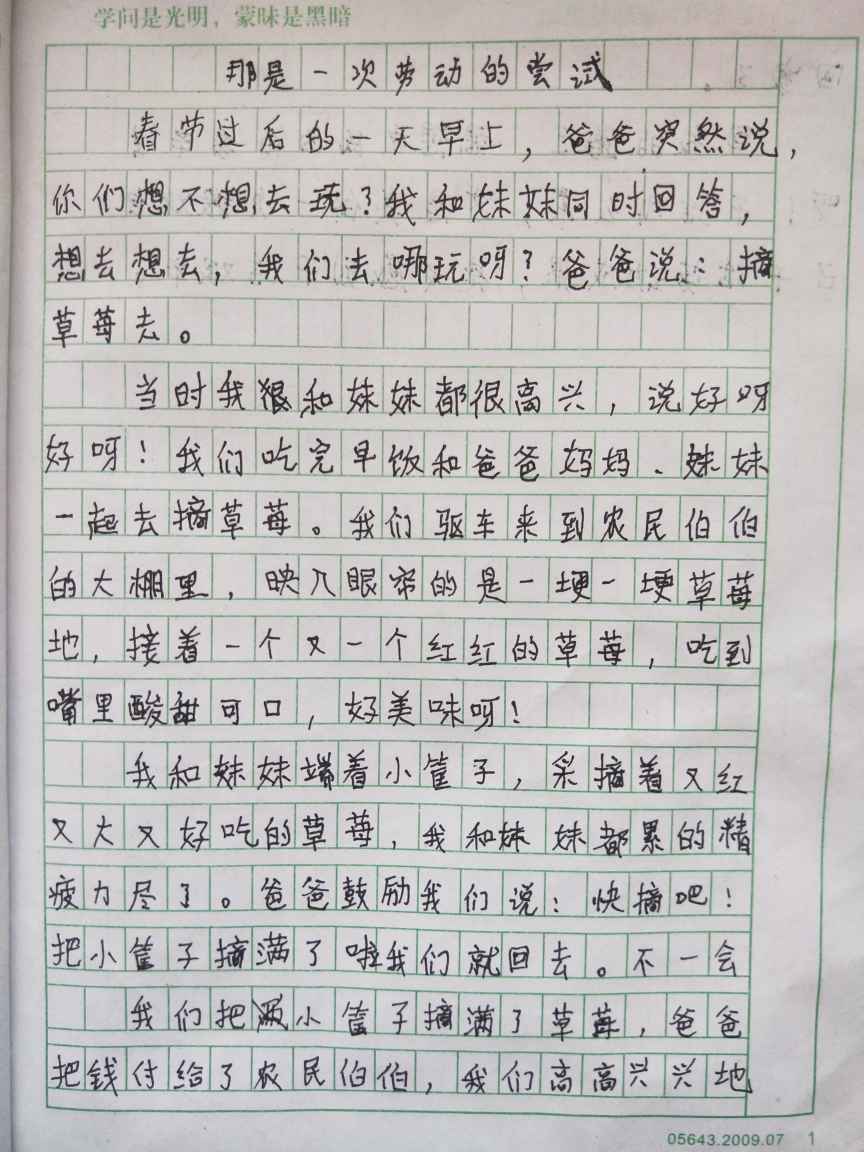 学问是光明，蒙昧是黑暗
那是一次劳动的尝试
春节过后的一天早上，爸爸突然说，
你们想不想去玩？我和妹妹同时回答，
想去想去，我们去哪玩呀？爸爸说：摘
草莓去。
当时我很和妹妹都很高兴，说好呀
好呀！我们吃完早饭和爸爸妈妈、妹妹
一起去摘草莓。我们驱车来到农民伯伯
的大棚里，映入眼帘的是一埂一埂草莓
地，接着一个又一个红红的草莓，吃到
嘴里酸甜可口，好美味呀！
我和妹妹端着小筐子，采摘着又红
又大又好吃的草莓，我和妹妹都累的精
疲力尽了。爸爸鼓励我们说：快摘吧！
把小筐子摘满了啦我们就回去。不一会
我们把小筐子摘满了草莓，爸爸
把钱付给了农民伯伯，我们高高兴兴地
05643.2009.07 1